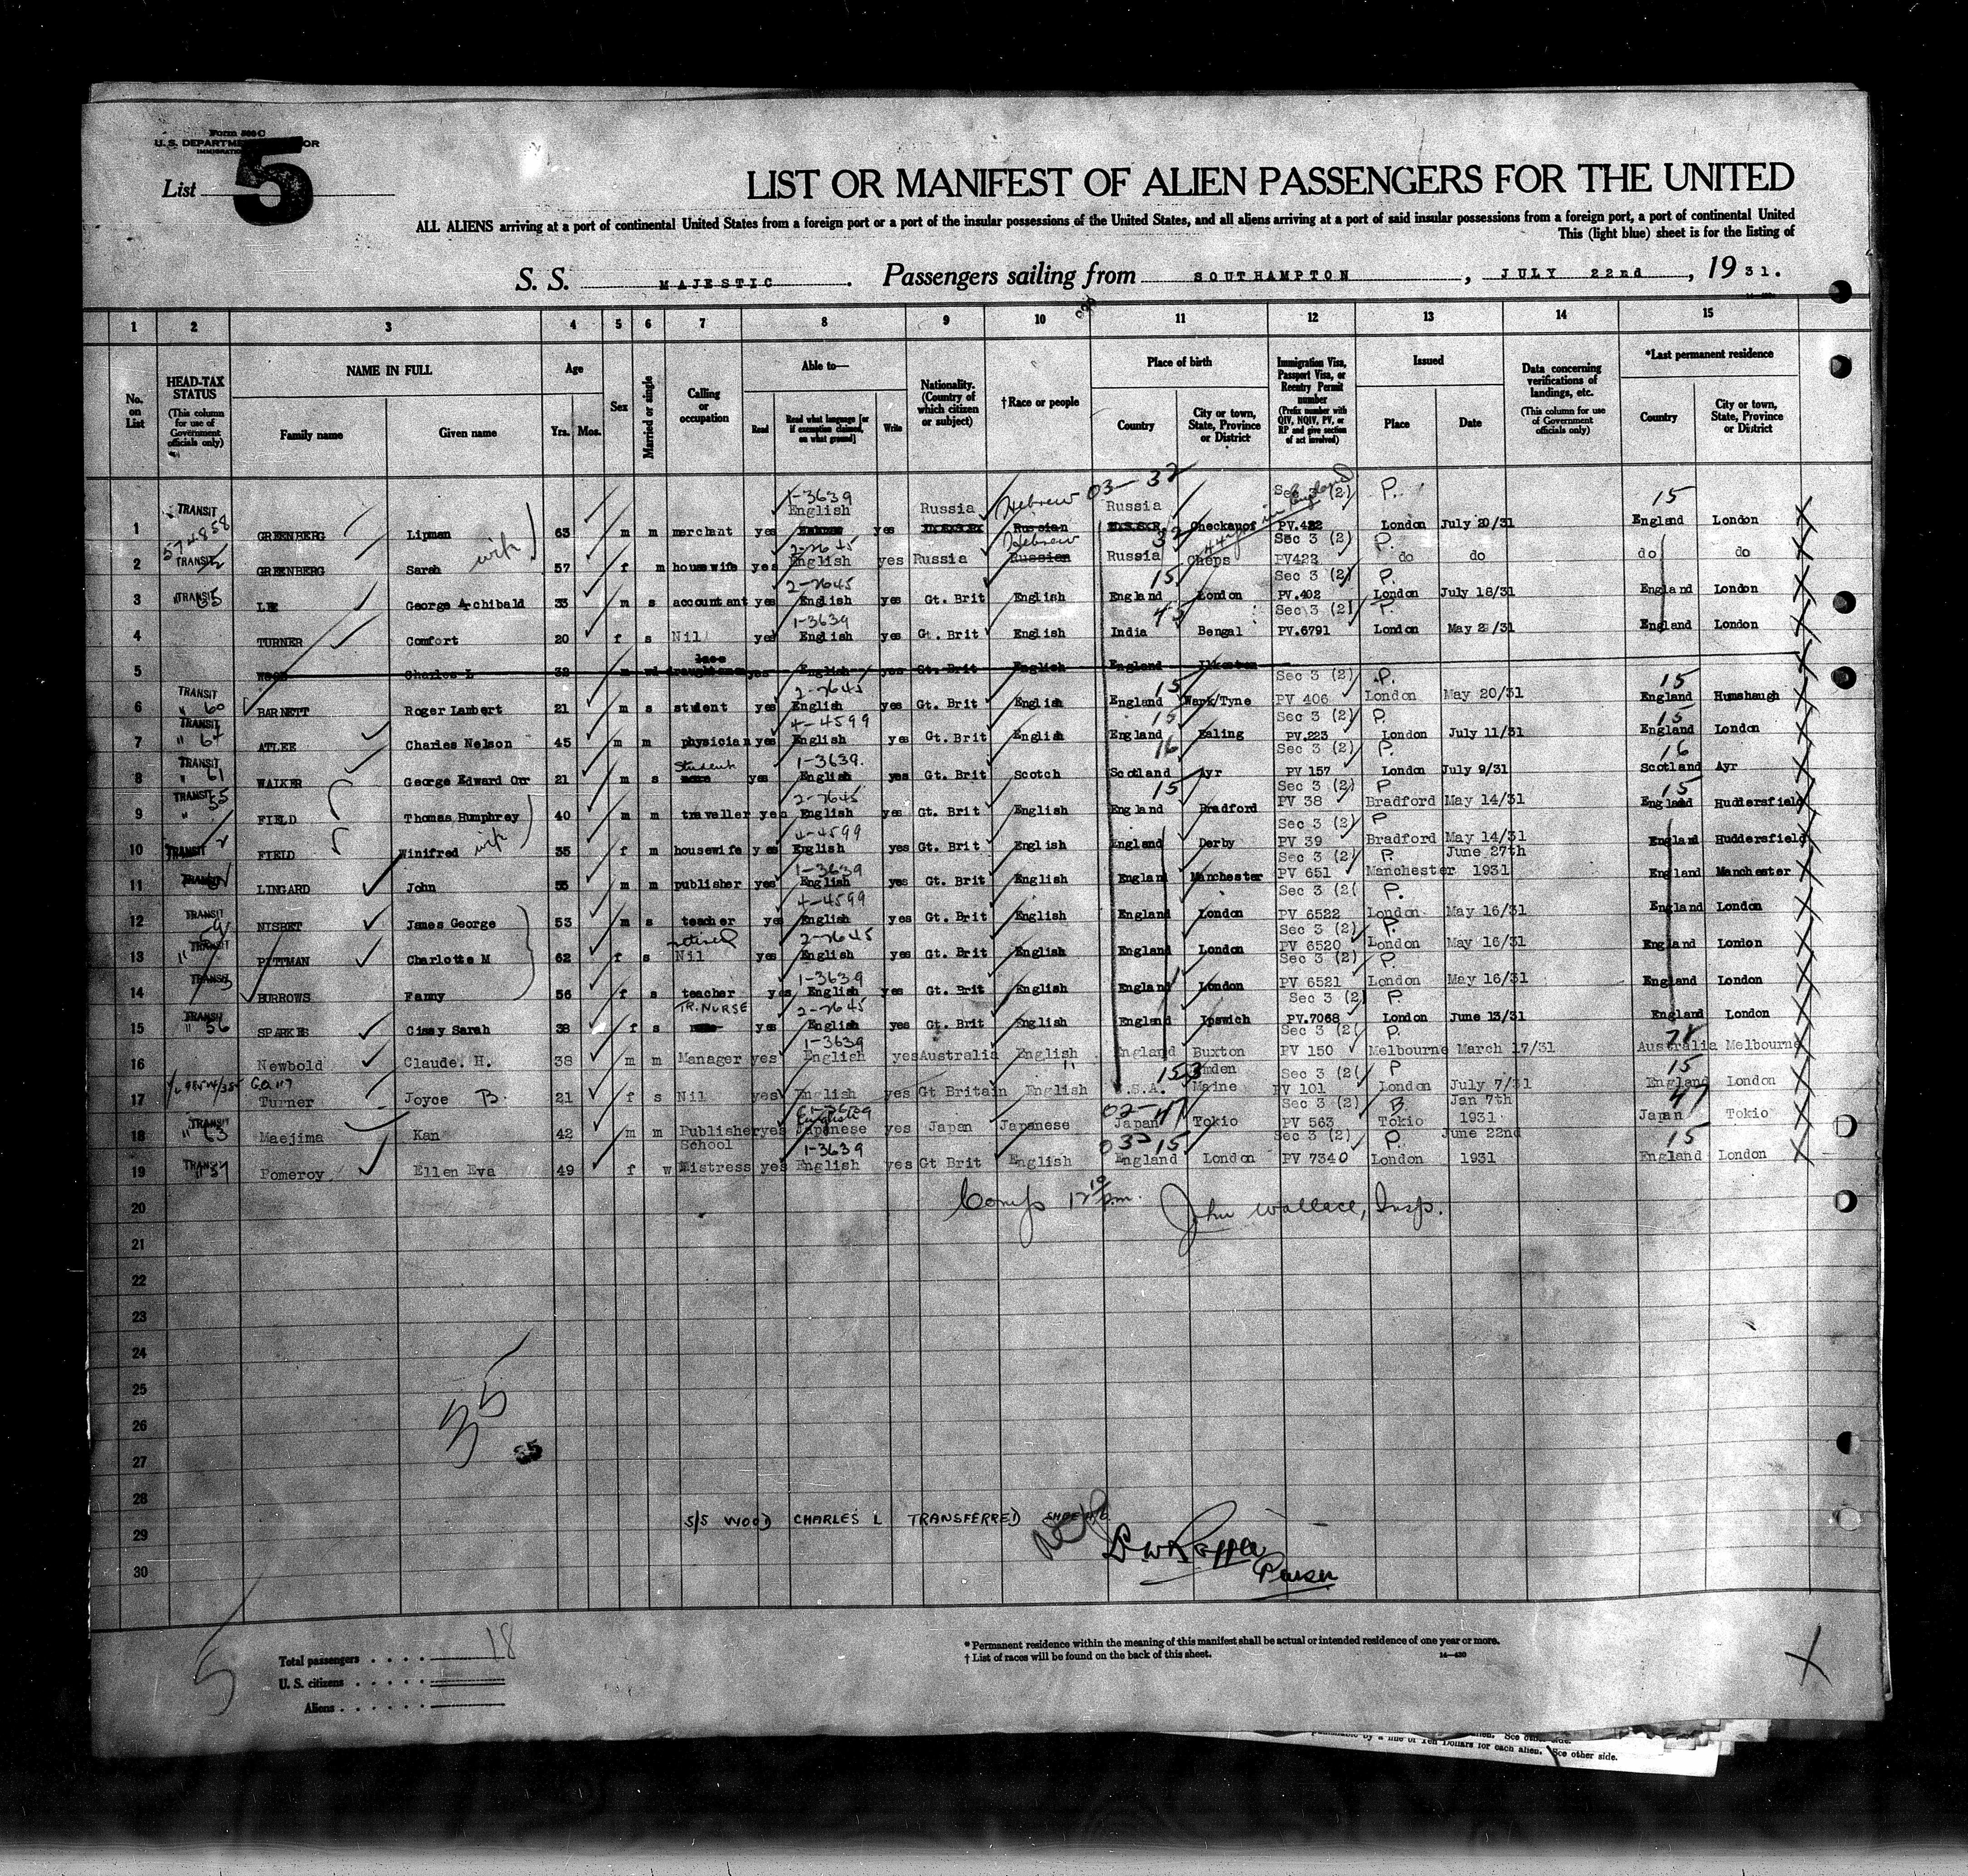 Form 500 C
U. S. DEPARTMENT OR
List 5
LIST OR MANIFEST OF ALIEN PASSENGERS FOR THE UNITED
ALL ALIENS arriving at a port of continental United States from a foreign port or a port of the insular possessions of the United States, and all aliens arriving at a port of said insular possessions from a foreign port, a port of continental United
This (light blue) sheet is for the listing of
S. S. MAJESTIC. Passengers sailing from SOUTHAMPTON, JULY 22nd, 1931.
1 2 3 4 5 6 7 8 9 10 11 12 13 14 15
No. on List
HEAD-TAX STATUS (This column for use of Government officials only)
NAME IN FULL Family name Given name
Age Yrs. Mos.
Sex
Married or single
Calling or occupation
Able to— Read Read what language [or if exemption claimed, on what ground] Write
Nationality. (Country of which citizen or subject)
†Race or people
Place of birth Country City or town, State, Province or District
Immigration Visa, Passport Visa, or Reentry Permit number (Prefix number with QIV, NQIV, PV, or RP and give section of act involved)
Issued Place Date
Data concerning verifications of landings, etc. (This column for use of Government officials only)
*Last permanent residence Country City or town, State, Province or District
03— 32
1 TRANSIT 574858 GREENBERG Lipman 63 m m merchant yes 1-3639 English yes Russia Hebrew Russian Russia Checkauof Sec 3 (2) PV.422 P. London July 20/31 15 England London
2 TRANSIT GREENBERG Sarah wife 57 f m housewife yes 2-2645 English yes Russia Hebrew Russian 32 Russia Cheps Sec 3 (2) PV422 P. do do do do
3 TRANSIT 65 LEE George Archibald 33 m s accountant yes 2-2645 English yes Gt. Brit English 15 England London Sec 3 (2) PV.402 P. London July 18/31 England London
4 TURNER Comfort 20 f s Nil yes 1-3639 English yes Gt. Brit English 45 India Bengal Sec 3 (2) PV.6791 P. London May 2 /31 England London
5 WOOD Charles L 32 m lace draughtsman yes English yes Gt. Brit English England Ilkeston
6 TRANSIT " 60 BARNETT Roger Lambert 21 m s student yes 2-2645 English yes Gt. Brit English 15 England Wark/Tyne Sec 3 (2) PV 406 P. London May 20/31 15 England Humshaugh
7 TRANSIT " 64 ATLEE Charles Nelson 45 m m physician yes 4-4599 English yes Gt. Brit English 15 England Ealing Sec 3 (2) PV.223 P. London July 11/31 15 England London
8 TRANSIT " 61 WALKER George Edward Orr 21 m s Student yes 1-3639. English yes Gt. Brit Scotch 16 Scotland Ayr Sec 3 (2) PV 157 P. London July 9/31 16 Scotland Ayr
9 TRANSIT " 55 FIELD Thomas Humphrey 40 m m traveller yes 2-2645 English yes Gt. Brit English 15 England Bradford Sec 3 (2) PV 38 P Bradford May 14/31 15 England Huddersfield
10 TRANSIT FIELD Winifred wife 35 f m housewife yes 4-4599 English yes Gt. Brit English England Derby Sec 3 (2) PV 39 P Bradford May 14/31 England Huddersfield
11 TRANSIT LINGARD John 55 m m publisher yes 1-3639 English yes Gt. Brit English England Manchester Sec 3 (2) PV 651 P. Manchester June 27th 1931 England Manchester
12 TRANSIT NISBET James George 53 m s teacher yes 4-4599 English yes Gt. Brit English England London Sec 3 (2( PV 6522 P. London May 16/31 England London
13 " TRANSIT PITTMAN Charlotte M 62 f s retired Nil yes 2-2645 English yes Gt. Brit English England London Sec 3 (2) PV 6520 P. London May 16/31 England London
14 TRANSIT BURROWS Fanny 56 f s teacher yes 1-3639 English yes Gt. Brit English England London Sec 3 (2) PV 6521 P. London May 16/31 England London
15 TRANSIT " 56 SPARKES Cissy Sarah 38 f s TR. NURSE yes 2-2645 English yes Gt. Brit English England Ipswich Sec 3 (2) PV.7068 P London June 13/31 England London
16 Newbold Claude. H. 38 m m Manager yes 1-3639 English yes Australia English England Buxton Sec 3 (2( PV 150 P. Melbourne March 17/31 Australia Melbourne
17 Turner Joyce B. 21 f s Nil yes English yes Gt Britain English U.S.A. Camden Maine Sec 3 (2( PV 101 P London July 7/31 15 England London
18 TRANSIT " 63 Maejima Kan 42 m m Publisher yes English Japanese yes Japan Japanese 02-47 Japan Tokio Sec 3 (2) PV 563 Tokio Jan 7th 1931 47 Japan Tokio
19 TRANSIT " 57 Pomeroy Ellen Eva 49 f w School Mistress yes 1-3639 English yes Gt Brit English 03-15 England London Sec 3 (2) PV 7340 P. London June 22nd 1931 15 England London
20 Comp 12 10 p.m. John Wallace, Insp.
21
22
23
24
25
26
27
28
29 5/5 WOOD CHARLES L TRANSFERRED
30 Purser
35
5
Total passengers . . . . 18
U. S. citizens . . . . .
Aliens . . . . . .
* Permanent residence within the meaning of this manifest shall be actual or intended residence of one year or more.
† List of races will be found on the back of this sheet.
14—430
Dollars for each alien. See other side.